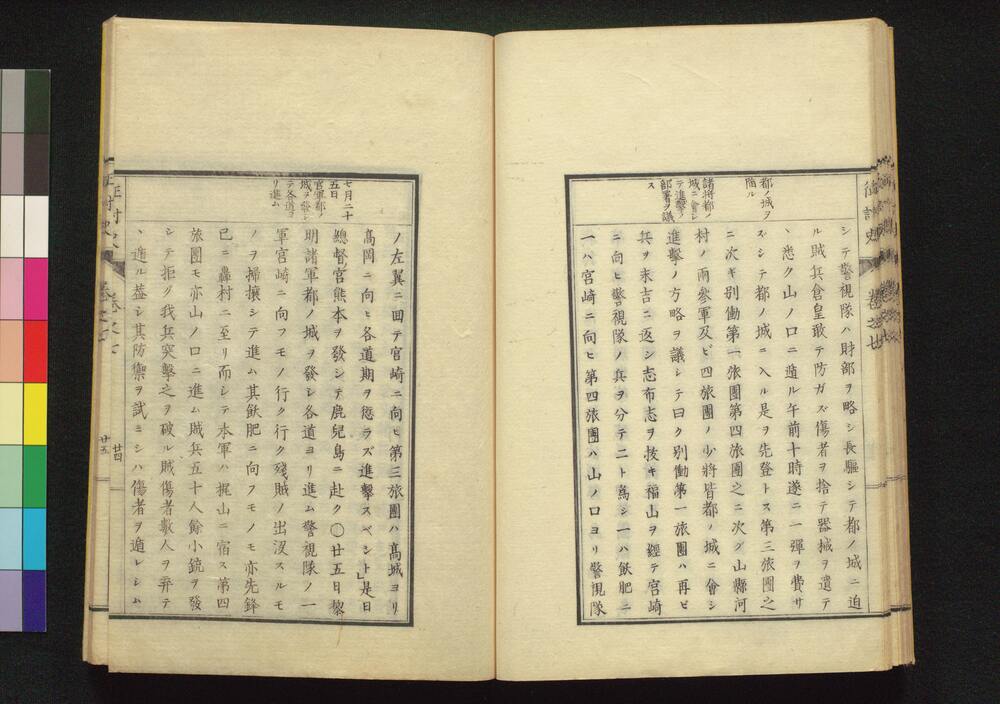 征討史 卷之七
都ノ城ヲ
陷ル
諸將都ノ
城ニ會シ
テ進擊ノ
部署ヲ議
ス
シテ警視隊ハ財部ヲ略シ長驅シテ都ノ城ニ迫
ル賊兵倉皇敢テ防ガズ傷者ヲ捨テ器械ヲ遺テ
丶悉ク山ノ口ニ遁ル午前十時遂ニ一彈ヲ費サ
ズシテ都ノ城ニ入ル是ヲ先登トス第三旅團之
ニ次ギ别働第一旅團第四旅團之ニ次グ山縣河
村ノ兩參軍及ビ四旅團ノ少將皆都ノ城ニ會シ
進擊ノ方略ヲ議シテ曰ク别働第一旅團ハ再ビ
兵ヲ末吉ニ返シ志布志ヲ拔キ福山ヲ經テ宮崎
ニ向ヒ警視隊ノ兵ヲ分テ二ト爲シ一ハ飫肥ニ
一ハ宮崎ニ向ヒ第四旅團ハ山ノ口ヨリ警視隊
七月二十
五日
官軍都ノ
城ヲ發シ
テ各道ヨ
リ進ム
ノ左翼ニ田テ宮崎ニ向ヒ第三旅團ハ高城ヨリ
高岡ニ向ヒ各道期ヲ愆ラズ進擊スベント」是日
總督官熊本ヲ發シテ鹿兒島ニ赴ク〇廿五日黎
明諸軍都ノ城ヲ發シ各道ヨリ進ム警視隊ノ一
軍宮崎ニ向フモノ行ク行ク殘賊ノ出沒スルモ
ノヲ掃攘シテ進ム其飫肥ニ向フモノモ亦先鋒
已ニ轟村ニ至リ而シテ本軍ハ梶山ニ宿ス第四
旅團モ亦山ノ口ニ進ム賊兵五十人餘小銃ヲ發
シテ拒グ我兵突擊之ヲ破ル賊傷者數人ヲ弃テ
丶遁ル蓋シ其防禦ヲ試ミシハ傷者ヲ遁レシム
卷之七
廿四
廿五